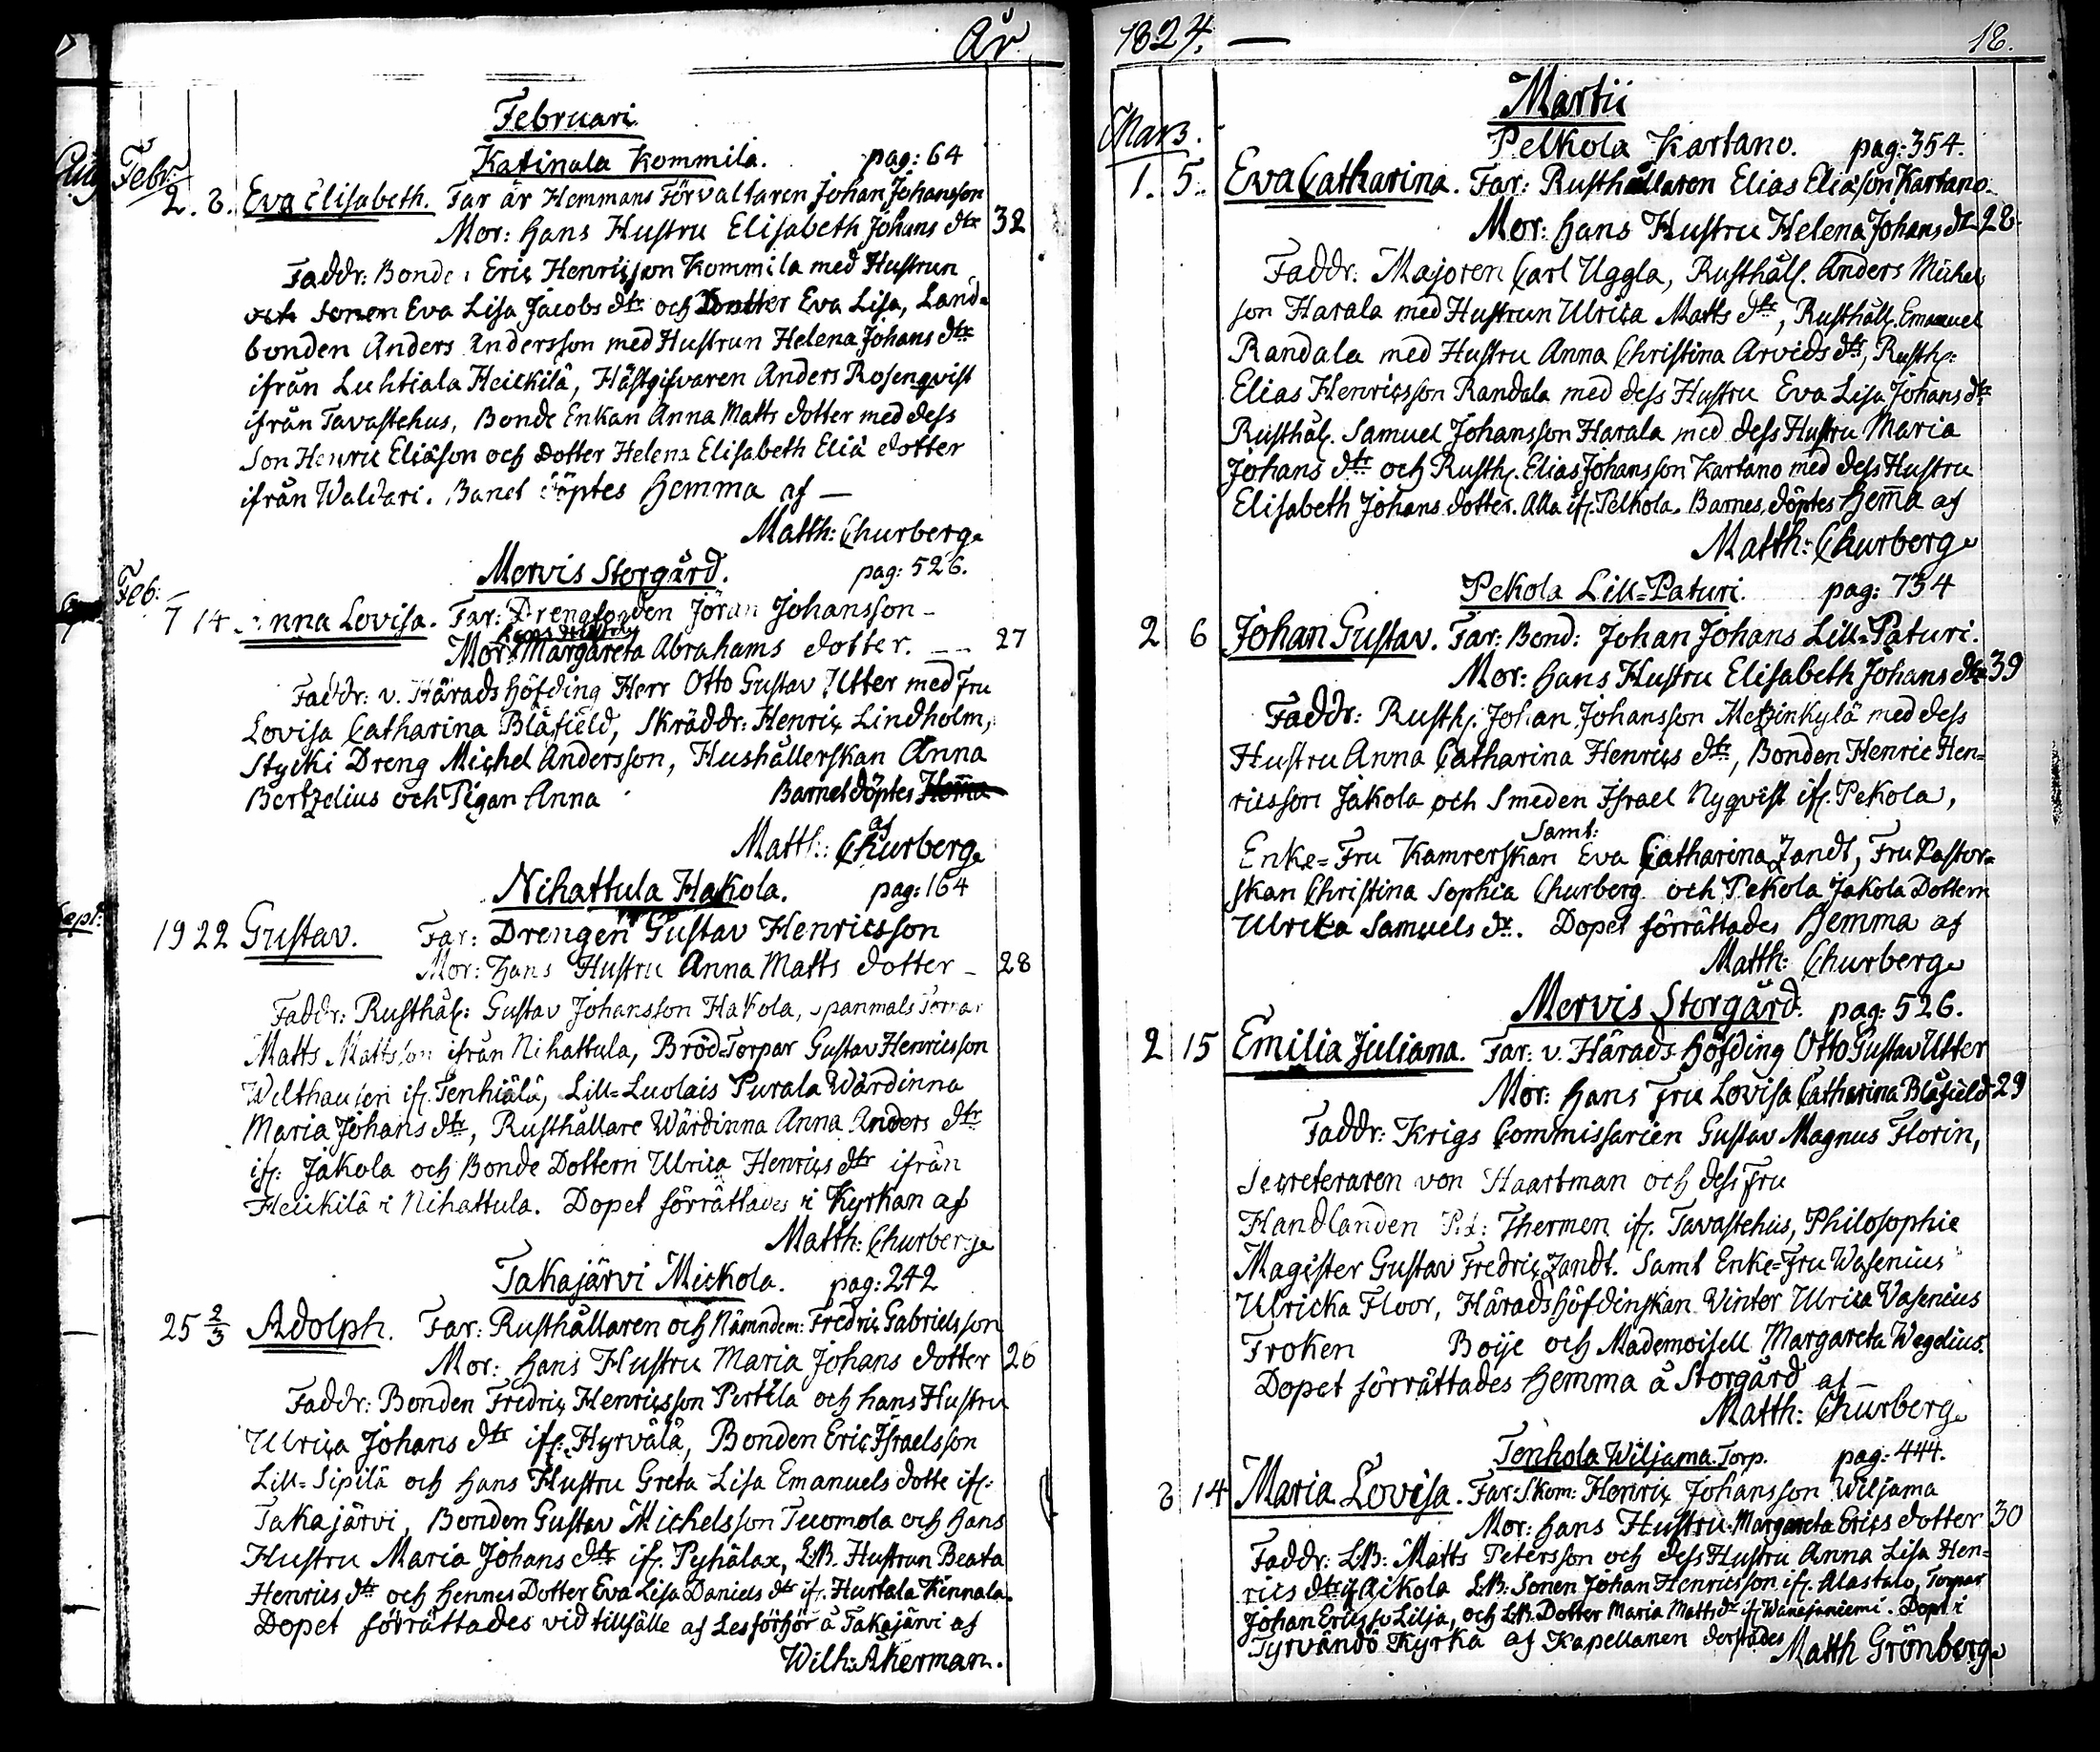 År
Februari
Katinala Kommila. pag: 64
Febr:
2. 8. Eva Elisabeth. Far är Hemmans Förvaltaren Johan Johansson
Mor: Hans Hustru Elisabeth Johans dtr 32
Faddr: Bonden Eric Henricsson Kommila med Hustrun
Eva Lisa Jacobs dtr och Dotter Eva Lisa, Land=
bonden Anders Andersson med Hustrun Helena Johans dtr
ifrån Luhtiala Heickilä, Hästgifvaren Anders Rosenqvist
ifrån Tavastehus, Bonde Enkan Anna Matts dotter med dess
Son Henric Eliäson och Dotter Helena Elisabeth Eliä dotter
ifrån Waldari. Banet döptes Hemma af —
Matth: Churberg
Mervis Storgård. pag: 526.
Feb:
7 14 Anna Lovisa. Far: Drengfogden Jöran Johansson -
Hans Hustru
Mor: Margareta Abrahams dotter. 27
Faddr: v. Härads Höfding Herr Otto Gustav Utter med Fru
Lovisa Catharina Blåfield, Skräddr: Henric Lindholm,
Stycki Dreng Michel Andersson, Hushållerskan Anna
Bertzelius och Pigan Anna Barnet döptes Hem̄a
af
Matth: Churberg
Nihattula Hakola. pag: 164
19 22 Gustav. Far: Drengen Gustav Henricsson
Mor: Hans Hustru Anna Matts dotter - 28
Faddr: Rusthål: Gustav Johansson Hakola, Spanmals Torpar
Matts Mattsson ifrån Nihattula, Bröd=Torpar Gustav Henricsson
Welthausen if. Tenhiälä, Lill=Luolais Purala Wärdinna
Maria Johans dtr, Rusthållare Wärdinna Anna Anders dtr
if. Jakola och Bonde Dottern Ulrica Henrics dtr ifrån
Heickilä i Nihattula. Dopet förrättades i Kyrkan af
Matth: Churberg
Takajärvi Mickola. pag: 242
25 2/3 Adolph. Far: Rusthållaren och Nämndem: Fredric Gabrielsson
Mor: Hans Hustru Maria Johans dotter 26
Faddr: Bonden Fredric Henricsson Perttila och hans Hustru
Ulrica Johans dtr if: Hyrvälä, Bonden Eric Israelsson
Lill=Sipilä och Hans Hustru Greta Lisa Emanuels dotte if:
Takajärvi, Bonden Gustav Michelsson Tuomola och Hans
Hustru Maria Johans dtr if. Pyhälax, L:B. Hustrun Beata
Henrics dtr och Hennes Dotter Eva Lisa Daniels dtr if. Hurtala Kinnala.
Dopet förrättades vid tillfälle af Lesförhör å Takajärvi af
Wilh: Åkerman.
1824. — 18.
Martii
Mars. Pelkola Kartano. pag: 354.
1. 5. Eva Catharina. Far: Rusthållaren Elias Eliäson Kartano
Mor: Hans Hustru Helena Johans dtr 28
Faddr: Majoren Carl Uggla, Rusthål. Anders Michel
son Harala med Hustrun Ulrica Matts dtr, Rusthål. Emanuel
Randala med Hustru Anna Christina Arvids dtr, Rusth:
Elias Henricsson Randala med dess Hustru Eva Lisa Johans dtr
Rusthål. Samuel Johansson Harala med dess Hustru Maria
Johans dtr och Rusth. Elias Johansson Kartano med dess Hustru
Elisabeth Johans dotter. Alla if. Pelkola. Barnes döptes Hem̄a af
Matth: Churberg
Pekola Lill=Paturi. pag: 734
2 6 Johan Gustav. Far: Bond: Johan Johans Lill=Paturi.
Mor: Hans Hustru Elisabeth Johans dtr 39
Faddr: Rusth. Johan Johansson Metzinkylä med dess
Hustru Anna Catharina Henrics dtr, Bonden Henric Hen=
ricsson Jakola och Smeden Israel Nyqvist if. Pekola,
Samt:
Enke=Fru Kamrerskan Eva Catharina Zandt, Fru Pastor=
skan Christina Sophia Churberg och Pekola Jakola Dottern
Ulrica Samuels dtr. Dopet förrättades Hemma af
Matth: Churberg
Mervis Storgård. pag: 526.
2 15 Emilia Juliana. Far: v. Härads Höfding Otto Gustav Utter
Mor: Hans Fru Lovisa Catharina Blåfield 29
Faddr: Krigs Commissarien Gustav Magnus Florin,
Secreteraren von Haartman och dess Fru
Handlanden Thermen if. Tavastehus, Philosophie
Magister Gustav Fredric Zandt. Samt Enke=Fru Wasenius
Ulricka Floor, Häradshöfdinskan Vinter Ulrica Vasenius
Froken Boije och Mademoisell Margareta Wegelius.
Dopet förrättades Hemma å Storgård af —
Matth: Churberg
Tenhola Wiljama Torp. pag: 444.
8 14 Maria Lovisa. Far: Skom: Henric Johansson Wiljama
Mor: Hans Hustru Margareta Erics dotter 30
Faddr: L:B: Matts Petersson och dess Hustru Anna Lisa Hen=
rics dtr if Aikola L:B: Sonen Johan Henricsson if. Alastalo, Torpar
Johan Ericsso Lilja, och L:B. Dotter Maria Matts dr if Wanajaniemi. Dopt i
Tyrvändö Kyrka af Kapellanen derstädes Matth Grönberg